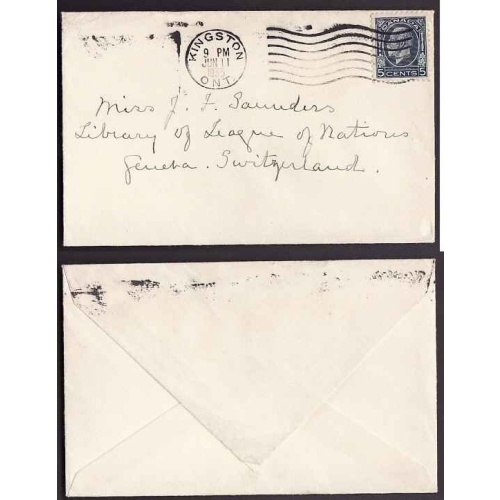 KINGSTON
9 PM
JUN 11
ONT.
CANADA
5 CENTS 5
Miss J. F. Saunders
Library of League of Nations
Geneva. Switzerland.